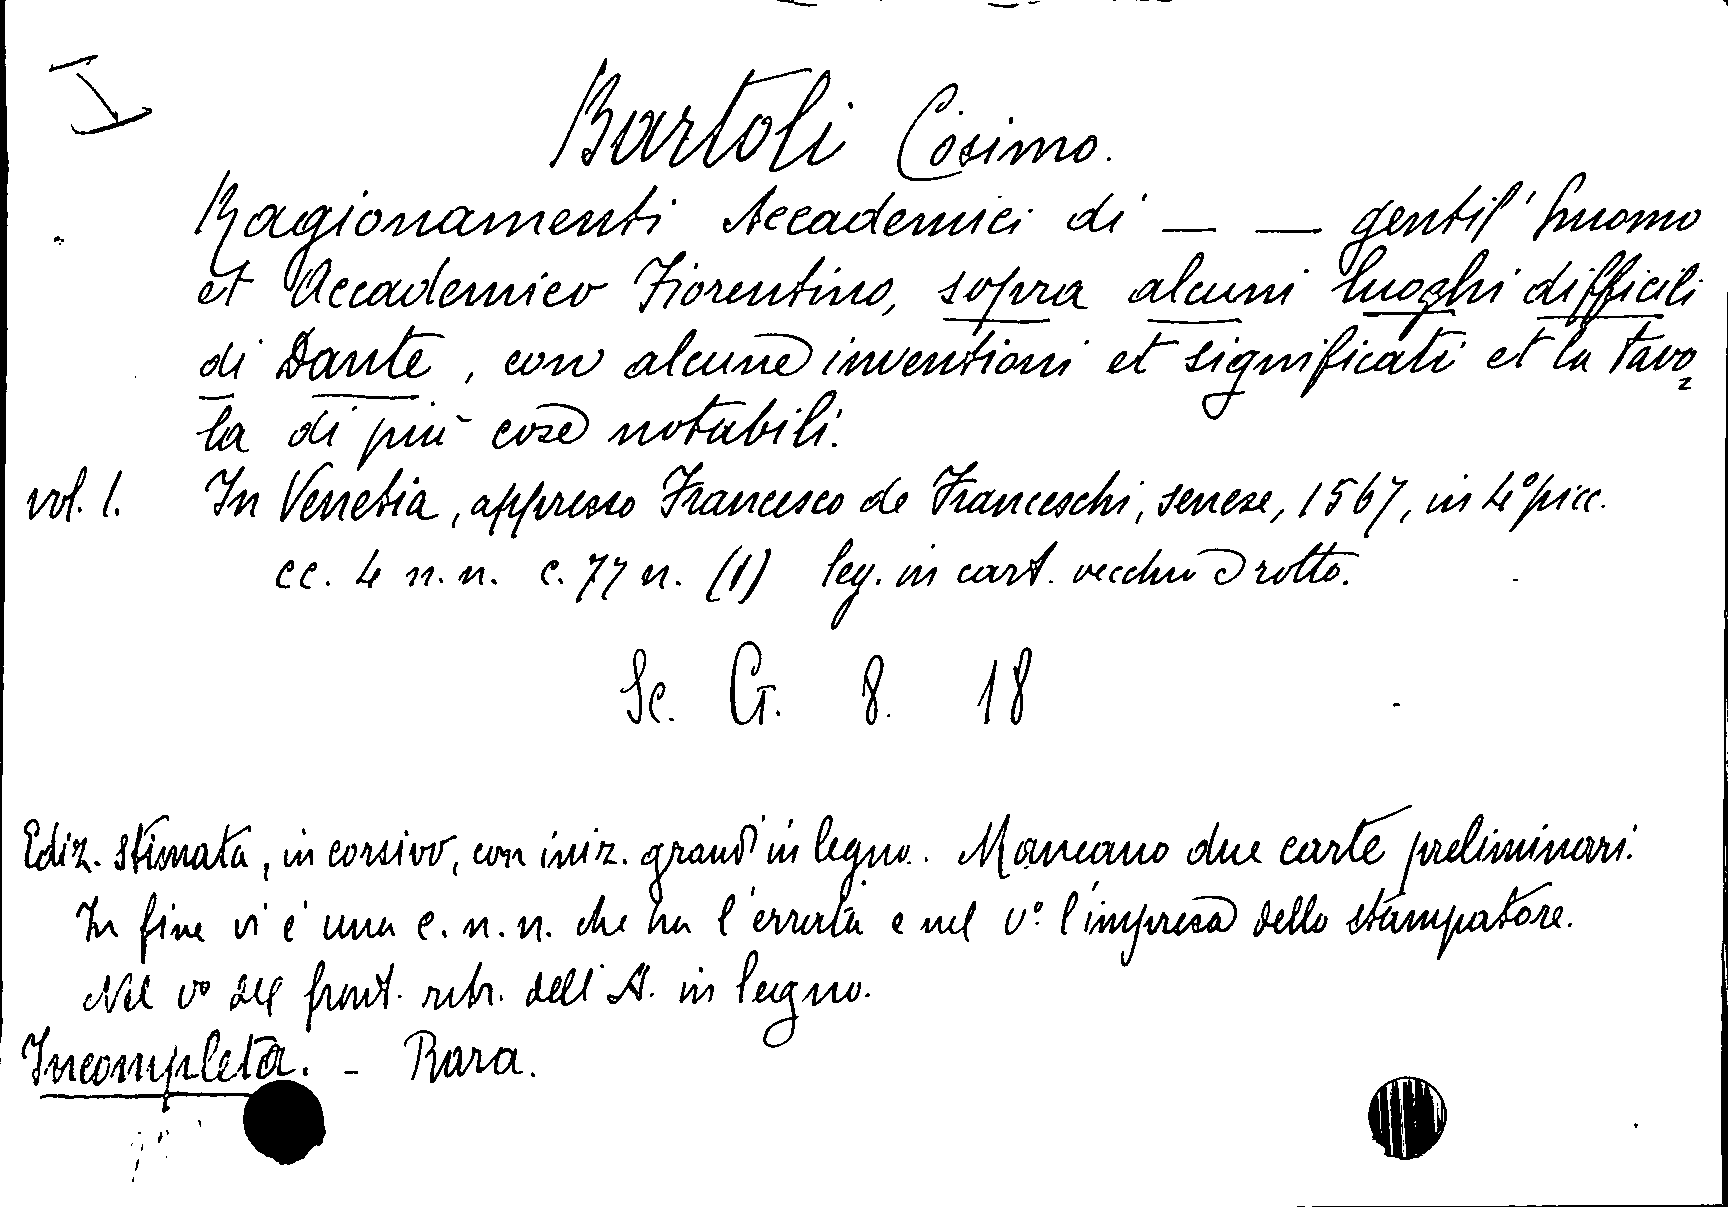 I
Bartoli Cosimo.
Ragionamenti Accademici di — — gentil'huomo
et Accademico Fiorentino, sopra alcuni luoghi difficili
di Dante, con alcune inventioni et significati et la Tavo=
la di più cose notabili.
vol. 1. In Venetia, appresso Francesco de Franceschi, senese, 1567, in 4° picc.
cc. 4 n.n. c. 77 n. (1) leg. in cart. vecchio e rotto.
Sc. G. 8. 18
Ediz. stimata, in corsivo, con iniz. grandi in legno. Mancano due carte preliminari.
In fine vi è una c. n. n. che ha l'errata e nel v.° l'impresa dello stampatore.
Nel v° del front. ritr. dell'A. in legno.
Incompleta. - Rara.